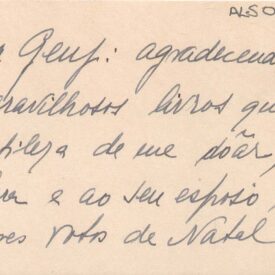 ALSO
Genf: agradecend
ravilhosos livros qu
tileza de me doar,
ra e ao seu esposo
es votos de Natal